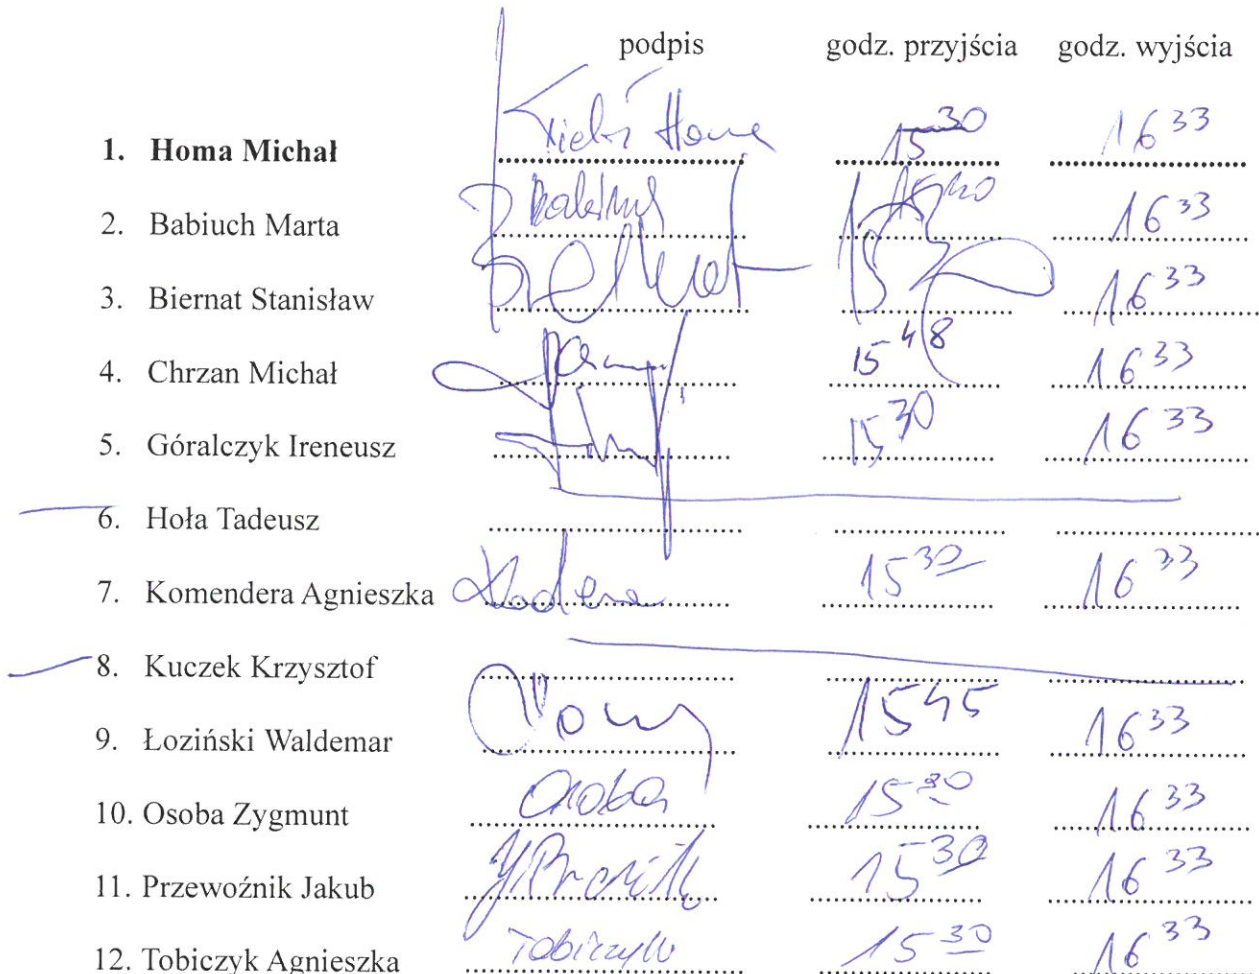 podpis godz. przyjścia godz. wyjścia
1. Homa Michał 15 30 16 33
2. Babiuch Marta 16 33
3. Biernat Stanisław 16 33
4. Chrzan Michał 15 48 16 33
5. Góralczyk Ireneusz 15 30 16 33
6. Hoła Tadeusz
7. Komendera Agnieszka 15 30 16 33
8. Kuczek Krzysztof
9. Łoziński Waldemar 15 45 16 33
10. Osoba Zygmunt Osoba 15 30 16 33
11. Przewoźnik Jakub 15 30 16 33
12. Tobiczyk Agnieszka Tobiczyk 15 30 16 33